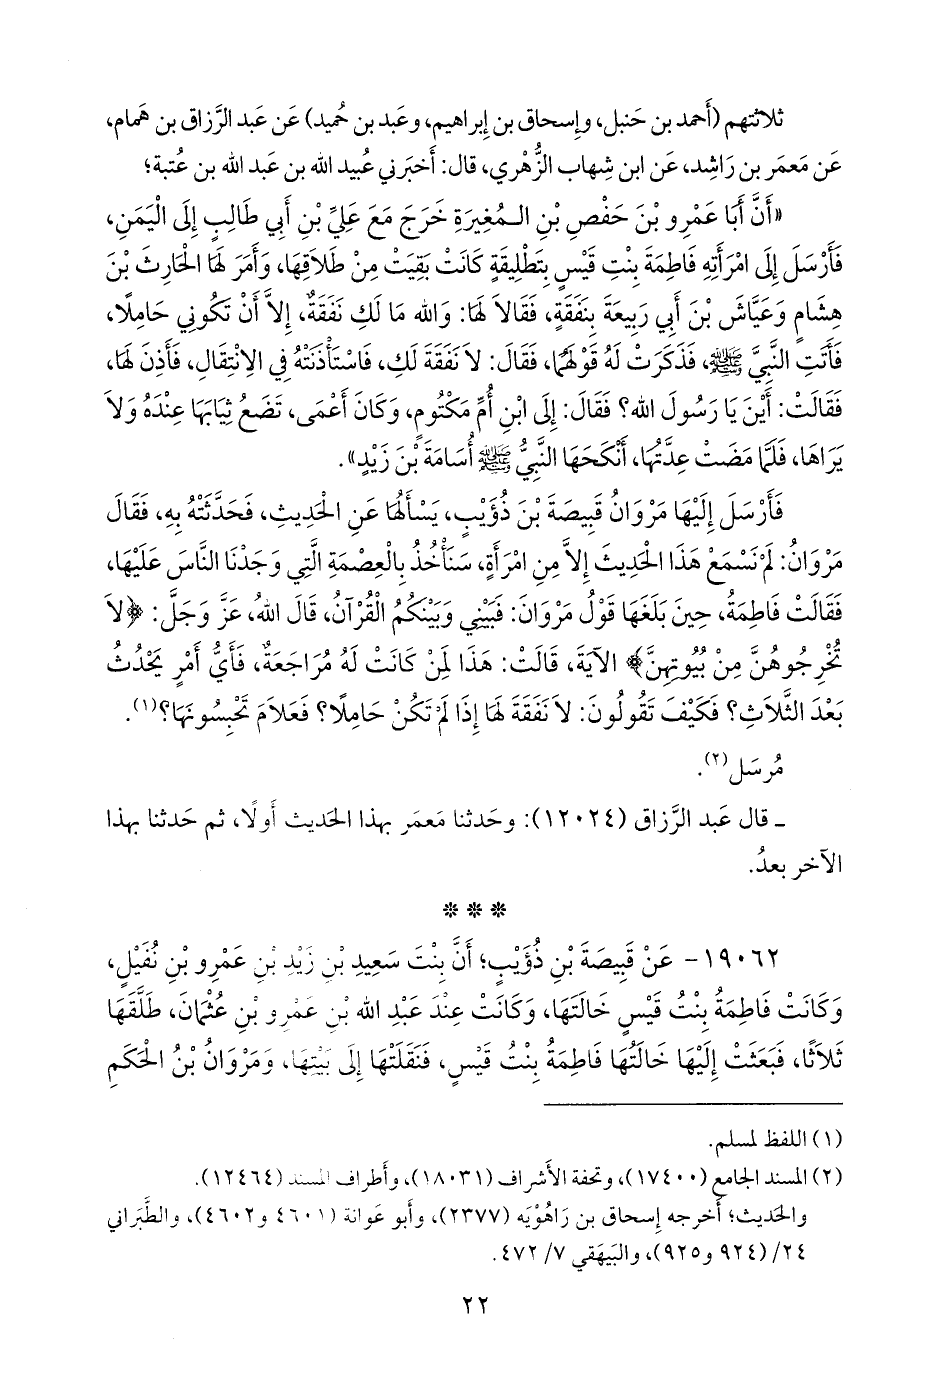 ثلاثتهم (أَحمد بن حَنبل، وإِسحاق بن إِبراهيم، وعَبد بن حُميد) عَن عَبد الرَّزاق بن هَمام،
عَن مَعمَر بن رَاشِد، عَن ابن شِهاب الزُّهْري، قال: أَخبَرني عُبيد الله بن عَبد الله بن عُتبة؛
«أَنَّ أَبَا عَمْرِو بْنَ حَفْصِ بْنِ الـمُغِيرَةِ خَرَجَ مَعَ عَلِيِّ بْنِ أَبِي طَالِبٍ إِلَى الْيَمَنِ،
فَأَرْسَلَ إِلَى امْرَأَتِهِ فَاطِمَةَ بِنْتِ قَيْسٍ بِتَطْلِيقَةٍ كَانَتْ بَقِيَتْ مِنْ طَلَاقِهَا، وَأَمَرَ لَهَا الْحَارِثَ بْنَ
هِشَامٍ وَعَيَّاشَ بْنَ أَبِي رَبِيعَةَ بِنَفَقَةٍ، فَقَالاَ لَهَا: وَالله مَا لَكِ نَفَقَةٌ، إِلاَّ أَنْ تَكُونِي حَامِلًا،
فَأَتَتِ النَّبِيَّ ﷺ، فَذَكَرَتْ لَهُ قَوْلَهُمَا، فَقَالَ: لاَ نَفَقَةَ لَكِ، فَاسْتَأْذَنَتْهُ فِي الاِنْتِقَالِ، فَأَذِنَ لَهَا،
فَقَالَتْ: أَيْنَ يَا رَسُولَ الله؟ فَقَالَ: إِلَى ابْنِ أُمِّ مَكْتُومٍ، وَكَانَ أَعْمَى، تَضَعُ ثِيَابَهَا عِنْدَهُ وَلاَ
يَرَاهَا، فَلَمَّا مَضَتْ عِدَّتُهَا، أَنْكَحَهَا النَّبِيُّ ﷺ أُسَامَةَ بْنَ زَيْدٍ».
فَأَرْسَلَ إِلَيْهَا مَرْوَانُ قَبِيصَةَ بْنَ ذُؤَيْبٍ، يَسْأَلُهَا عَنِ الْحَدِيثِ، فَحَدَّثَتْهُ بِهِ، فَقَالَ
مَرْوَانُ: لَمْ نَسْمَعْ هَذَا الْحَدِيثَ إِلاَّ مِنِ امْرَأَةٍ، سَنَأْخُذُ بِالْعِصْمَةِ الَّتِي وَجَدْنَا النَّاسَ عَلَيْهَا،
فَقَالَتْ فَاطِمَةُ، حِينَ بَلَغَهَا قَوْلُ مَرْوَانَ: فَبَيْنِي وَبَيْنَكُمُ الْقُرْآنُ، قَالَ اللهُ، عَزَّ وَجَلَّ: ﴿لاَ
تُخْرِجُوهُنَّ مِنْ بُيُوتِهِنَّ﴾ الآيَةَ، قَالَتْ: هَذَا لِمَنْ كَانَتْ لَهُ مُرَاجَعَةٌ، فَأَيُّ أَمْرٍ يَحْدُثُ
بَعْدَ الثَّلاَثِ؟ فَكَيْفَ تَقُولُونَ: لاَ نَفَقَةَ لَهَا إِذَا لَمْ تَكُنْ حَامِلًا؟ فَعَلاَمَ تَحْبِسُونَهَا؟(١).
مُرسَل(٢).
ـ قال عَبد الرَّزاق (١٢٠٢٤): وحَدثنا مَعمَر بهذا الحَديث أَولًا، ثم حَدثنا بهذا
الآخر بعدُ.
* * *
١٩٠٦٢- عَنْ قَبِيصَةَ بْنِ ذُؤَيْبٍ؛ أَنَّ بِنْتَ سَعِيدِ بْنِ زَيْدِ بْنِ عَمْرِو بْنِ نُفَيْلٍ،
وَكَانَتْ فَاطِمَةُ بِنْتُ قَيْسٍ خَالَتَهَا، وَكَانَتْ عِنْدَ عَبْدِ الله بْنِ عَمْرِو بْنِ عُثْمَانَ، طَلَّقَهَا
ثَلاَثًا، فَبَعَثَتْ إِلَيْهَا خَالَتُهَا فَاطِمَةُ بِنْتُ قَيْسٍ، فَنَقَلَتْهَا إِلَى بَيْتِهَا، وَمَرْوَانُ بْنُ الْحَكَمِ
(١) اللفظ لمسلم.
(٢) المسند الجامع (١٧٤٠٠)، وتحفة الأَشراف (١٨٠٣١)، وأَطراف المسند (١٢٤٦٤).
والحَديث؛ أَخرجه إِسحاق بن رَاهُوْيَه (٢٣٧٧)، وأَبو عَوانة (٤٦٠١ و٤٦٠٢)، والطَّبَراني
٢٤/ (٩٢٤ و٩٢٥)، والبَيهَقي ٧/ ٤٧٢.
٢٢